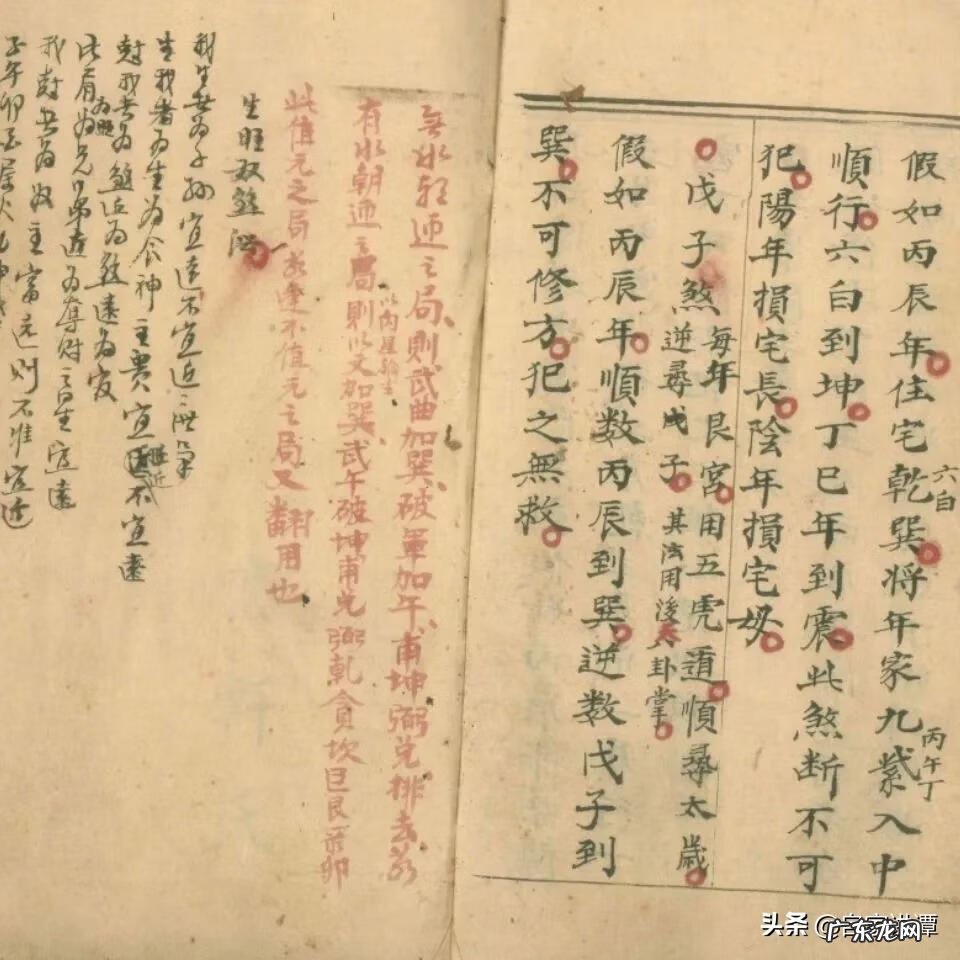 假如丙辰年住宅乾巽将年家九紫入中
六白
丙午丁
順行六白到坤丁巳年到震此煞断不可
犯陽年損宅長陰年損宅母
戊子煞 每年艮宮用五虎遁順尋太歲
逆尋戊子其法用後八卦掌
假如丙辰年順数丙辰到巽逆数戊子到
巽不可修方犯之無救
無水朝迎之局則武曲加巽破軍加午甫坤弼兌排去
有水朝迎之局則以文加巽武午破坤甫兌弼乾貪坎巨艮 卯
此值元之局 不值元之局又翻用也
生旺奴煞
我生 為子孙宜遠不宜近
生我者為生為食神主貴宜 不宜遠
為煞近為煞遠為
比肩為兄弟近為奪財 宜遠
我 為奴主富
子午卯酉屬火
头条
广东龙网